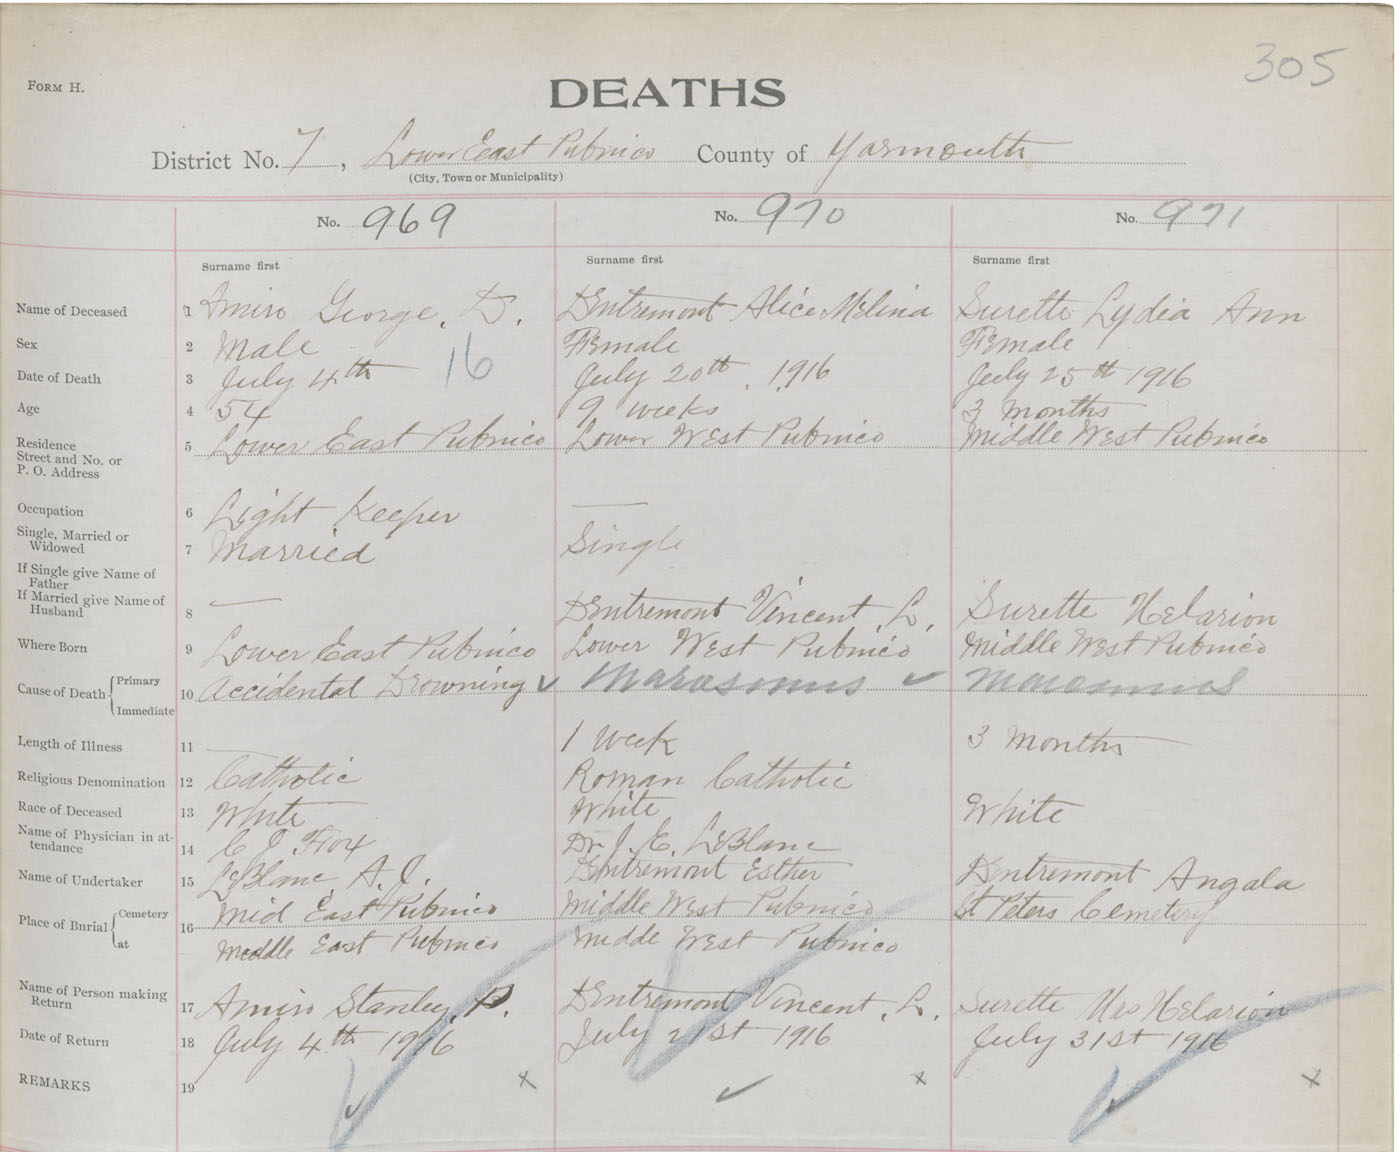 305
FORM H.
DEATHS
District No. 7, Lower East Pubnico County of Yarmouth
(City, Town or Municipality)
No. 969 No. 970 No. 971
Surname first Surname first Surname first
Name of Deceased 1 Amiro George. D. DEntremont Alice Melina Surette Lydia Ann
Sex 2 Male Female Female
Date of Death 3 July 4th 16 July 20th. 1916 July 25th 1916
Age 4 54 9 weeks 3 Months
Residence Street and No. or P. O. Address 5 Lower East Pubnico Lower West Pubnico Middle West Pubnico
Occupation 6 Light Keeper —
Single, Married or Widowed 7 Married Single
If Single give Name of Father
If Married give Name of Husband 8 — DEntremont Vincent. L. Surette Helarion
Where Born 9 Lower East Pubnico Lower West Pubnico Middle West Pubnico
Cause of Death { Primary Immediate 10 Accidental Drowning ✓ Marasmus ✓
Length of Illness 11 — 1 Week 3 Months
Religious Denomination 12 Catholic Roman Catholic
Race of Deceased 13 White White White
Name of Physician in attendance 14 C J. Fox Dr. J. E. LeBlanc
Name of Undertaker 15 LeBlanc A. J. DEntremont Esther DEntremont Angala
Place of Burial { Cemetery 16 Mid East Pubnico Middle West Pubnico St Peters Cemetery
at Middle East Pubnico Middle West Pubnico
Name of Person making Return 17 Amiro Stanley. P. DEntremont Vincent. L. Surette Mrs Helarion
Date of Return 18 July 4th 1916 July 21st 1916 July 31st 1916
REMARKS 19 ✓ x ✓ x ✓ x